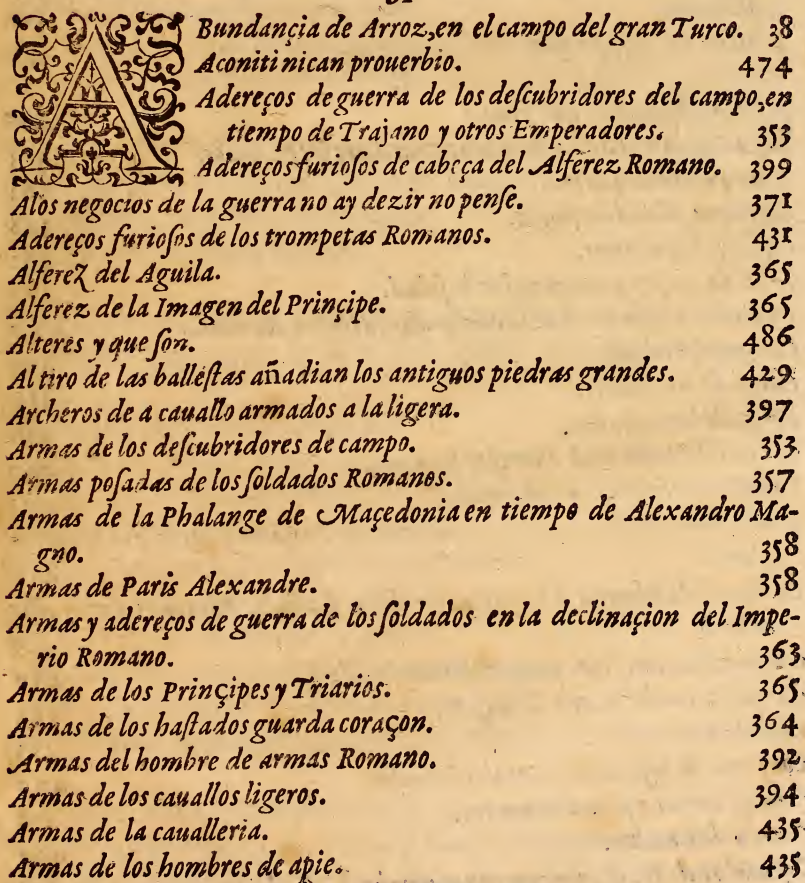 ABundançia de Arroz, en el campo del gran Turco. 38
Aconiti nican prouerbio. 474
Adereços de guerra de los deſcubridores del campo, en
tiempo de Trajano y otros Emperadores. 353
Adereços furioſos de cabeça del Alferez Romano. 399
Alos negocios de la guerra no ay dezir no penſe. 371
Adereços furioſos de los trompetas Romanos. 431
Alferez del Aguila. 365
Alferez de la Imagen del Prinçipe. 365
Alteres y que ſon. 486
Al tiro de las balleſtas añadian los antiguos piedras grandes. 429
Archeros de a cauallo armados a la ligera. 397
Armas de los deſcubridores de campo. 353
Armas poſadas de los ſoldados Romanos. 357
Armas de la Phalange de Maçedonia en tiempo de Alexandro Ma-
gno. 358
Armas de Paris Alexandre. 358
Armas y adereços de guerra de los ſoldados en la declinaçion del Impe-
rio Romano. 363
Armas de los Prinçipes y Triarios. 365
Armas de los haſtados guarda coraçon. 364
Armas del hombre de armas Romano. 392
Armas de los cauallos ligeros. 394
Armas de la caualleria. 435
Armas de los hombres de apie. 435